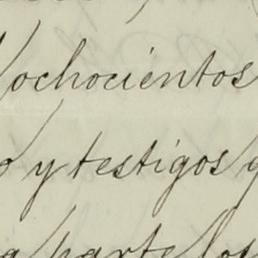 ochocientos
o y testigos
a parte los